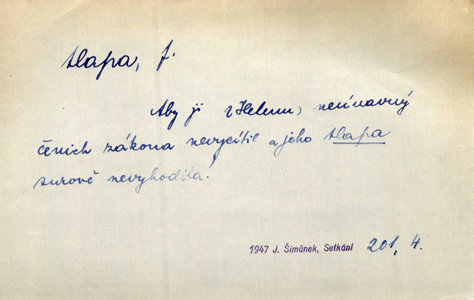 tlapa, f.
Aby ji (Helenu) neúnavný
čenich zákona nevycítil a jeho tlapa
surově nevyhodila.
1947 J. Šimůnek, Setkání 201, 4.